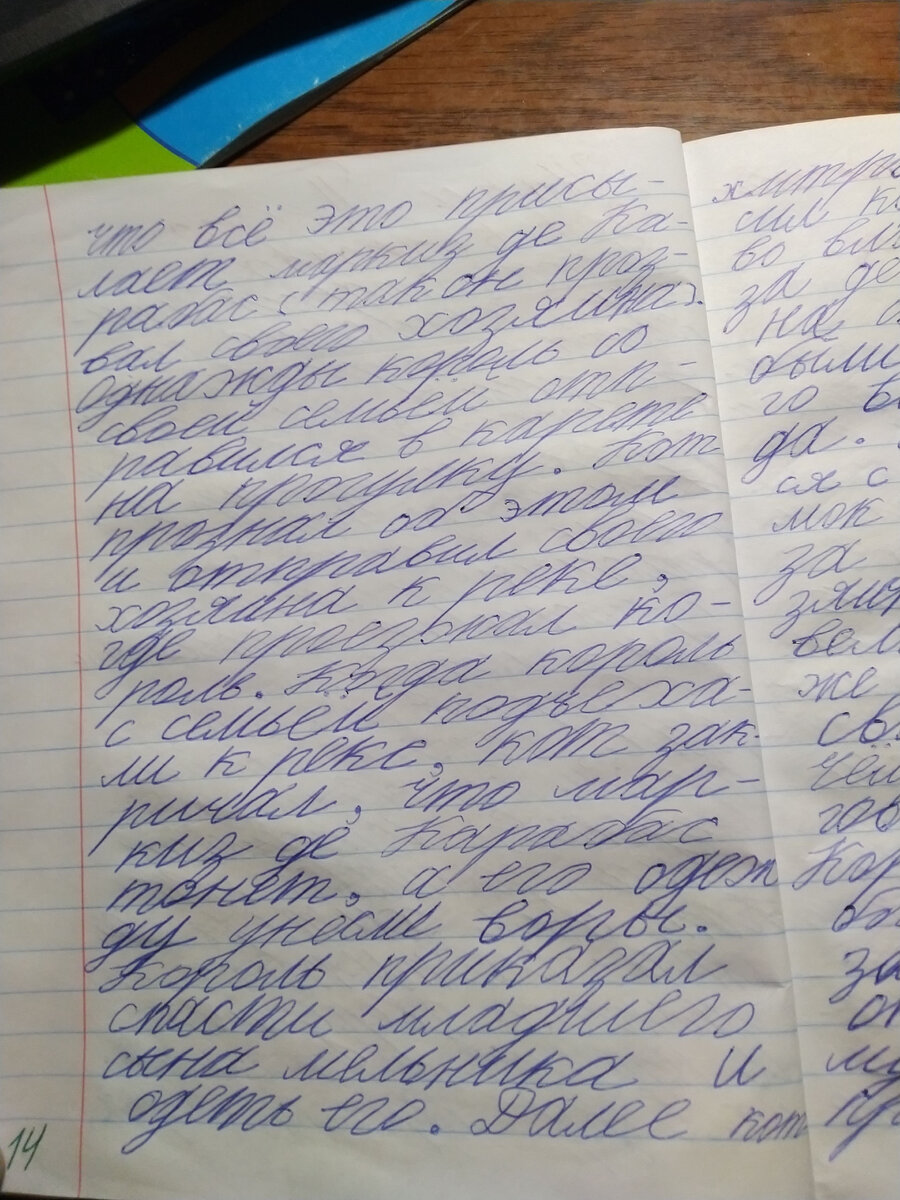 что всё это присы-
лает маркиз де Ка-
рабас (так он проз-
вал своего хозяина).
Однажды король со
своей семьёй отп-
равился в карете
на прогулку. Кот
прознал об этом
и отправил своего
хозяина к реке,
где проезжал ко-
роль. Когда король
с семьёй подъеха-
ли к реке, кот зак-
ричал, что мар-
киз де Карабас
тонет, а его одеж
ду унесли воры.
Король приказал
спасти младшего
сына мельника и
одеть его. Далее кот
14
хитр
сил к
во вл
за де
на
были
го в
да.
ся с
мок
за
зяи
вели
же
св
чём
гов
Кор
об
за
он
му
пр